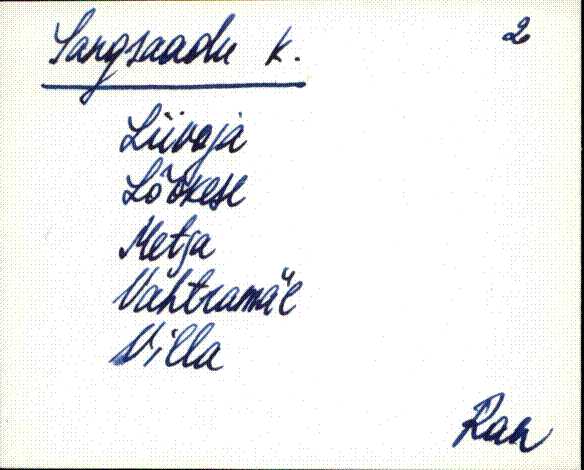 Sangsaadu k. 2
Liivoja
Lõõkese
Metsa
Vahtramäe
Villa
Ran